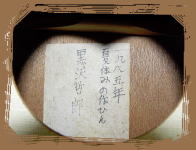 一九八五年
夏休みの作ひん
黒沢哲郎